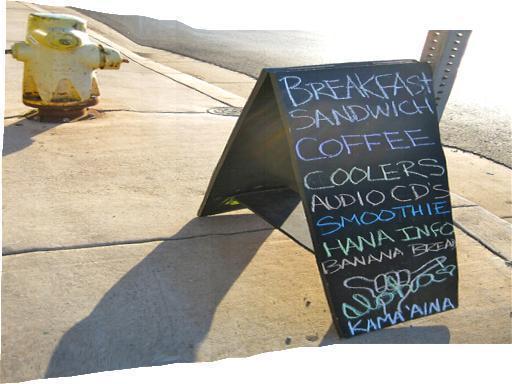 BREAKFAST
SANDWICH
COFFEE
COOLERS
AUDIO CD'S
SMOOTHIE
HANA INFO
BANANA BREAD
KAMA'AINA